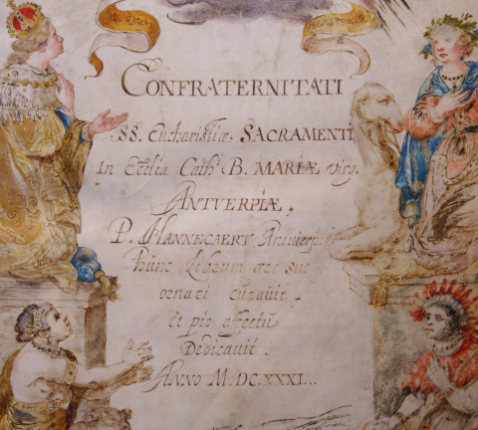 CONFRATERNITATI
SS. Eucharistiæ SACRAMENTI
In Ecclia Cath: B. MARIÆ virg.
ANTVERPIÆ.
P. HANNECAERT Antverp
hunc Librum ære suo
ornari curavit
et pio affectu
Dedicavit.
ANNO MDCXXXI